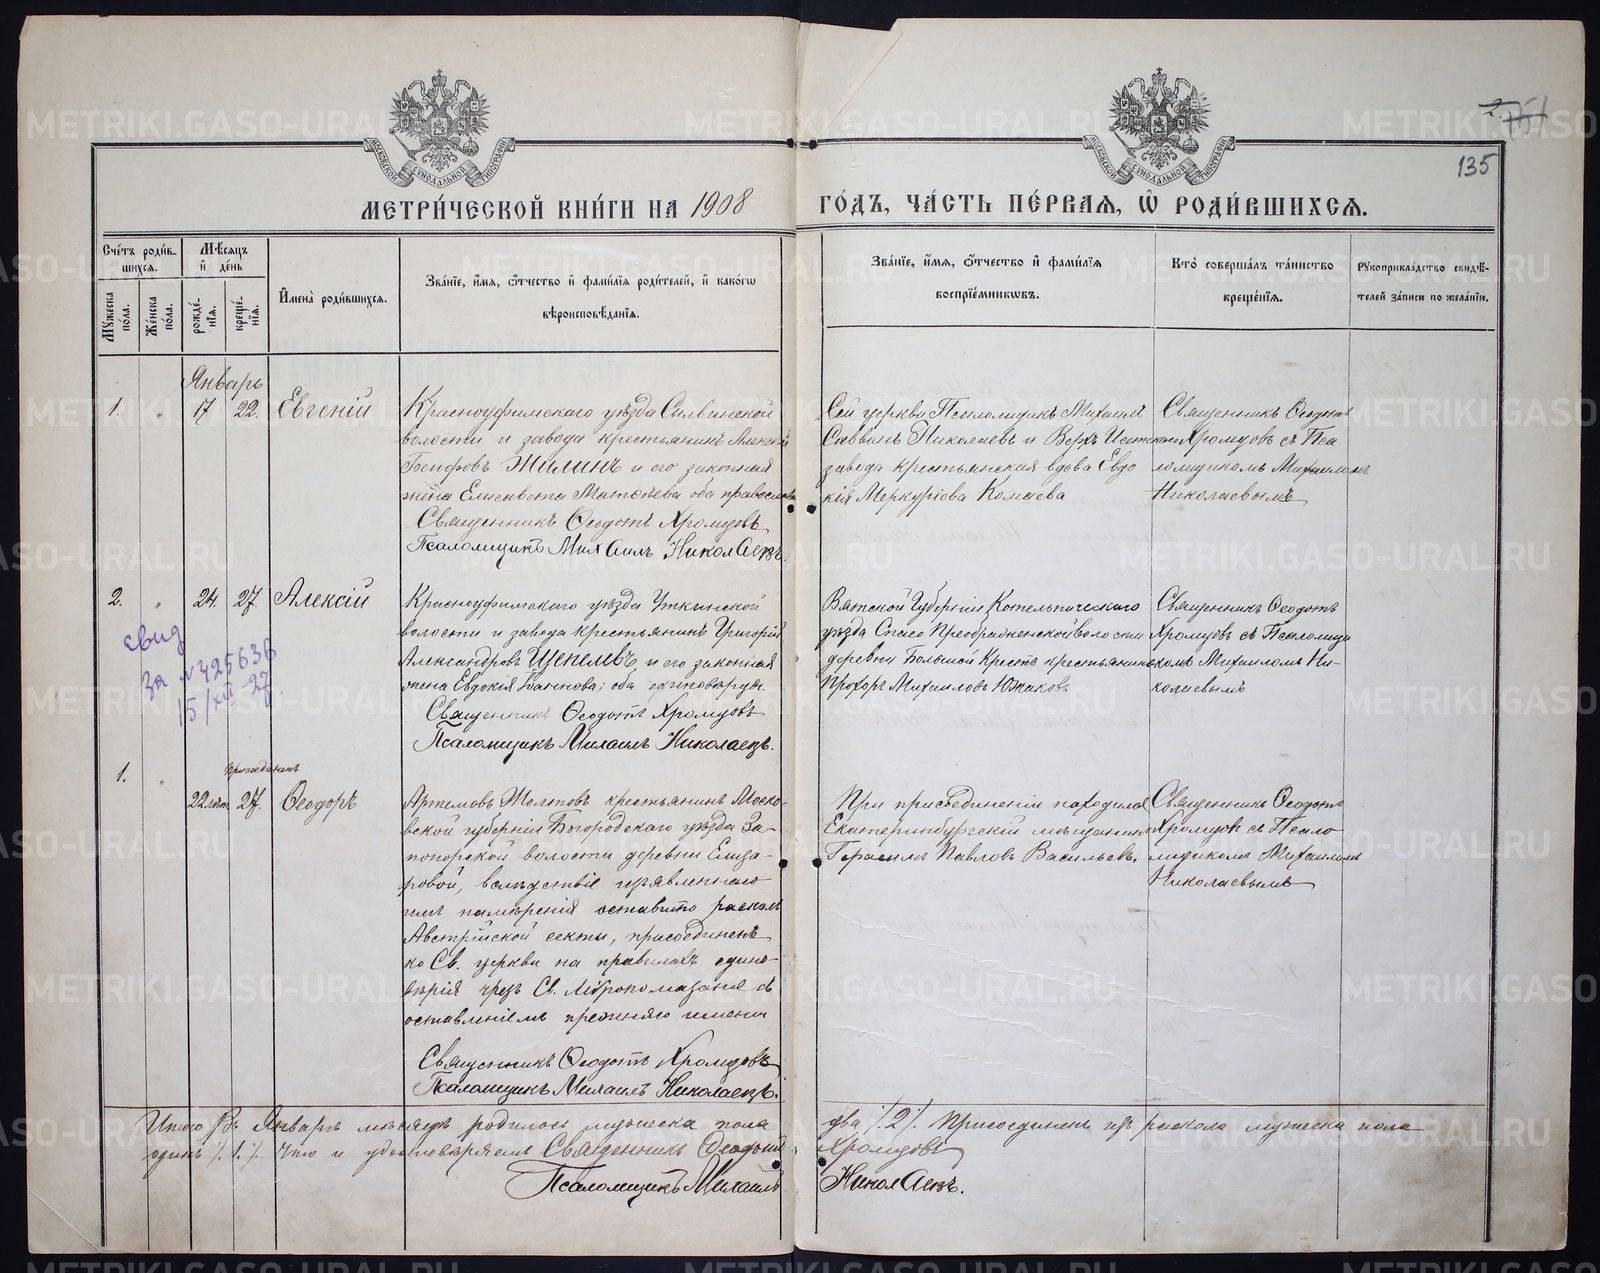 135
МЕТРИ́ЧЕСКОЙ КНИ́ГИ НА 1908 ГО́ДЪ, ЧА́СТЬ ПЕ́РВАЯ, Ѡ҆ РОДИ́ВШИХСЯ.
Сче́тъ роди́в-
шихся.
Мѣ́сяцъ
и҆ де́нь
Му́жеска по́ла.
Же́нска по́ла.
рожде́-
нїя.
креще́-
нїя.
И҆мена̀ роди́вшихся.
Зва́нїе, и҆́мя, ѻ҆́тчество и҆ фами́лїя роди́телей, и҆ како́гѡ
вѣроисповѣ́данїя.
Зва́нїе, и҆́мя, ѻ҆́тчество и҆ фами́лїя
воспрїе́мникѡвъ.
Кто̀ соверша́лъ та́инство
креще́нїя.
Рꙋкоприкла́дство свидѣ́-
телей за́писи по жела́нїю.
Январь
1. " 17 22. Евгеній
Красноуфимскаго уѣзда Сылвинской
волости и завода крестьянинъ Алексѣй
Іосифовъ Жилинъ и его законная
жена Елисавета Матѳеева оба православн
Священникъ Ѳеодотъ Хромцовъ
Псаломщикъ Михаилъ Николаевъ.
Сей церкви Псаломщикъ Михаилъ
Саввинъ Николаевъ и Верхъ Исетскаго
завода крестьянская вдова Евдо
кія Меркуріева Комаева
Священникъ Ѳеодотъ
Хромцовъ съ Пса
ломщикомъ Михаиломъ
Николаевымъ
2. " 24. 27. Алексій
свид
за № 425636
15/XII-27.
Красноуфимскаго уѣзда Уткинской
волости и завода крестьянинъ Григорій
Александровъ Щепелевъ и его законная
жена Евдокія Іоаннова; оба единовѣрцы.
Священникъ Ѳеодотъ Хромцовъ
Псаломщикъ Михаилъ Николаевъ.
Вятской Губерніи Котельническаго
уѣзда Спасо Преображенской волости
деревни Большой Крестъ крестьянинъ
Прохоръ Михаиловъ Южаковъ
Священникъ Ѳеодотъ
Хромцовъ съ Псаломщи
комъ Михаиломъ Ни-
колаевымъ
1. " присоединенъ
22 лѣт. 27. Ѳеодоръ
Артемовъ Желтовъ крестьянинъ Моско-
вской губерніи Богородскаго уѣзда За-
понорской волости деревни Елиза-
ровой, вслѣдствіе изъявленнаго
имъ намѣренія оставить расколъ
Австрійской секты, присоединенъ
ко Св. церкви на правилахъ едино-
вѣрія чрезъ Св. Мѵропомазаніе съ
оставленіемъ прежняго имени
Священникъ Ѳеодотъ Хромцовъ
Псаломщикъ Михаилъ Николаевъ.
При присоединеніи находился
Екатеринбургскій мѣщанинъ
Герасимъ Павловъ Васильевъ.
Священникъ Ѳеодотъ
Хромцовъ съ Псало
мщикомъ Михаиломъ
Николаевымъ
Итого въ Январѣ мѣсяцѣ родилось мужеска пола два /. 2 /. Присоединенъ изъ раскола мужеска пола
одинъ /. 1. /. Что и удостовѣряемъ Священникъ Ѳеодотъ Хромцовъ
Псаломщикъ Михаилъ Николаевъ.
METRIKI.GASO-URAL.RU